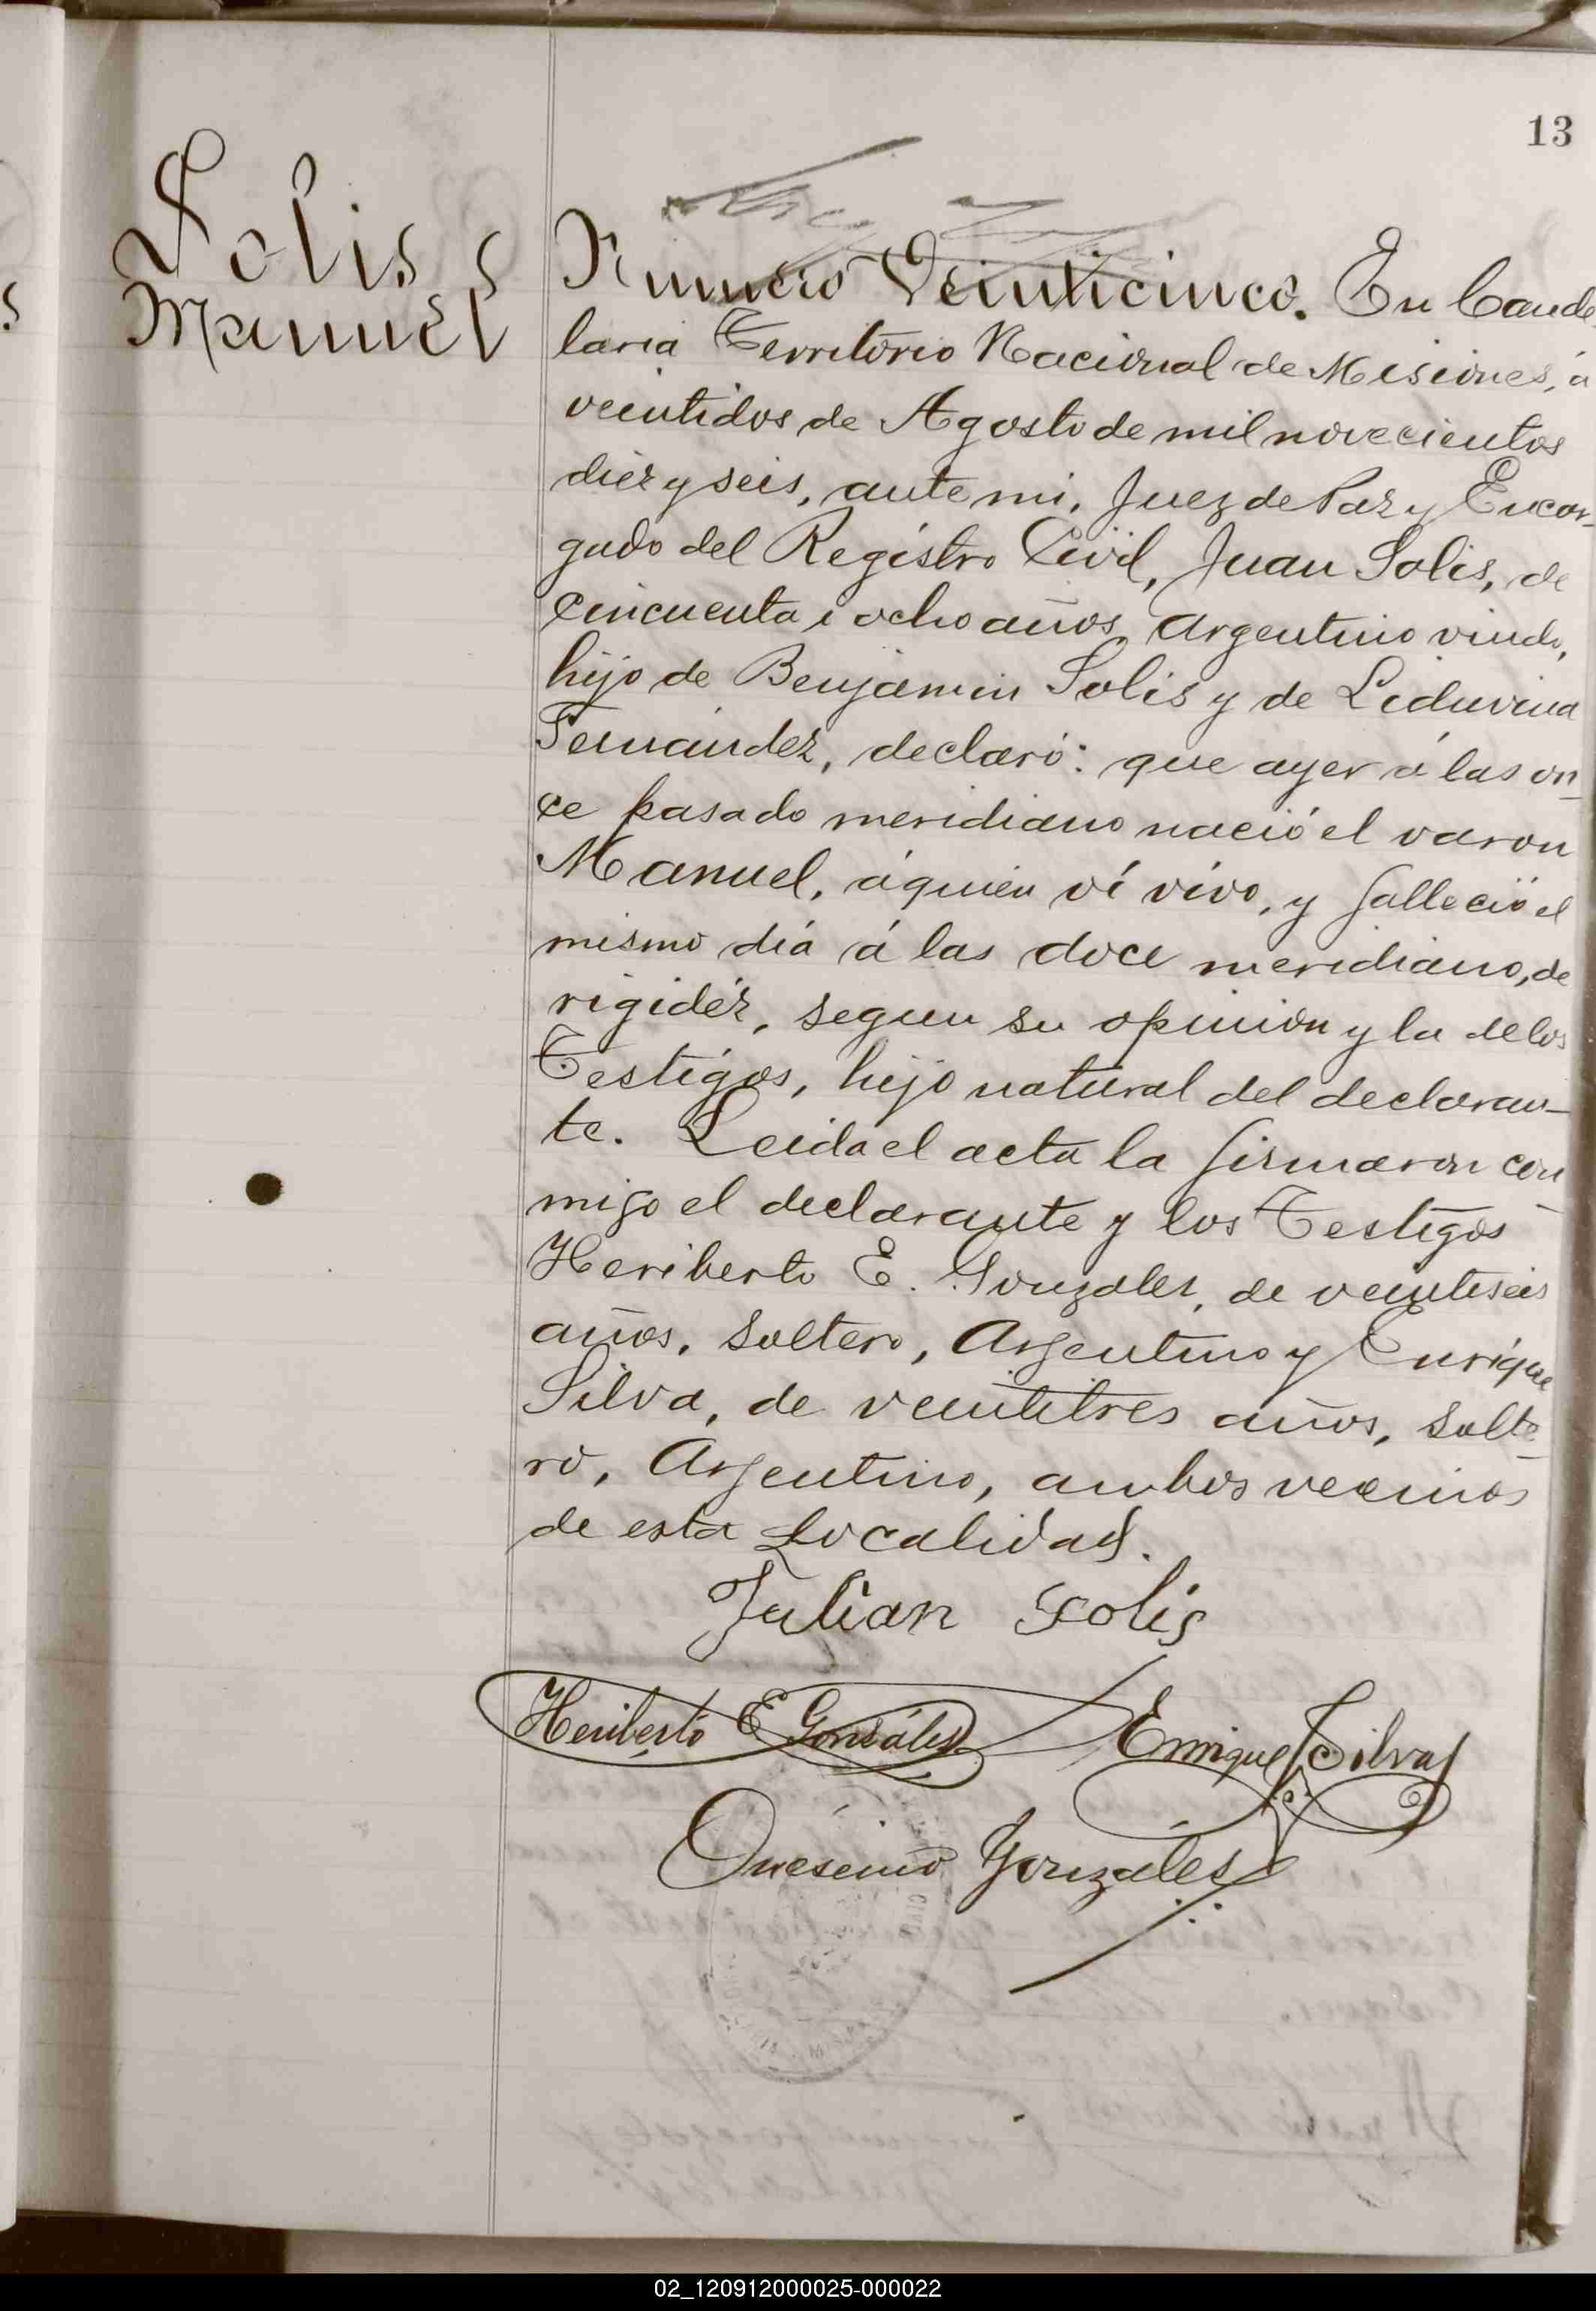 13
Solis
Manuel
Numero Veinticinco. En Cande
laria Territorio Nacional de Misiones, á
veintidos de Agosto de mil novecientos
diez y seis, ante mi, Juez de Paz y Encar-
gado del Registro Civil, Juan Solis, de
cincuenta i ocho años, Argentino viudo,
hijo de Benjamin Solis y de Liduvina
Fernández, declaró: que ayer á las on-
ce pasado meridiano nació el varon
Manuel, á quien ví vivo, y falleció el
mismo día á las doce meridiano, de
rigidéz, segun su opinión y la de los
Testigos, hijo natural del declaran-
te. Leida el acta la firmaron con-
migo el declarante y los Testigos
Heriberto E. Gonzalez, de veintiseis
años, Soltero, Argentino y Enrique
Silva, de veintitres años, Solte-
ro, Argentino, ambos vecinos
de esta Localidad.
Julian Solis
Heriberto E Gonsález
Enrique Silva
Onésimo Gonzáles
02_120912000025-000022